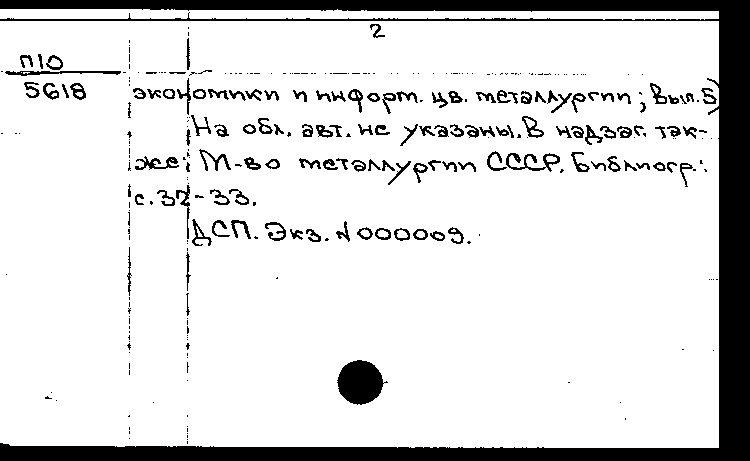 2
П10
5618
экономики и информ. цв. металлургии; Вып. 5)
На обл. авт. не указаны. В надзаг. так-
же: М-во металлургии СССР. Библиогр.:
с. 32-33.
ДСП. Экз. N 000009.